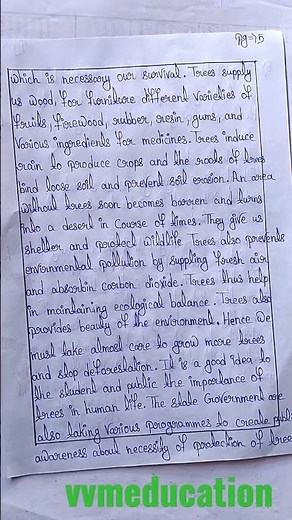 Pg⇒5
which is necessary our survival. Trees supply
us wood, for furniture different varieties of
fruits, firewood, rubber, resin, gums, and
various ingredients for medicines. Trees induce
rain to produce crops and the roots of trees
bind loose soil and prevent soil erosion. An area
without trees soon becomes barren and turns
into a desert in course of times. They give us
shelter and protect wildlife Trees also prevents
environmental pollution by suppling fresh air
and absorbin corbon dioxide. Trees thus help
in maintaining ecological balance. Trees also
provides beauty of the environment. Hence we
must take almost care to grow more trees
and stop deforestation. It is a good idea to
the student and public the importance of
trees in human life. The state Government are
also taking various porogrammes to create publi
awareness about necessity of protection of tree
vvmeducation